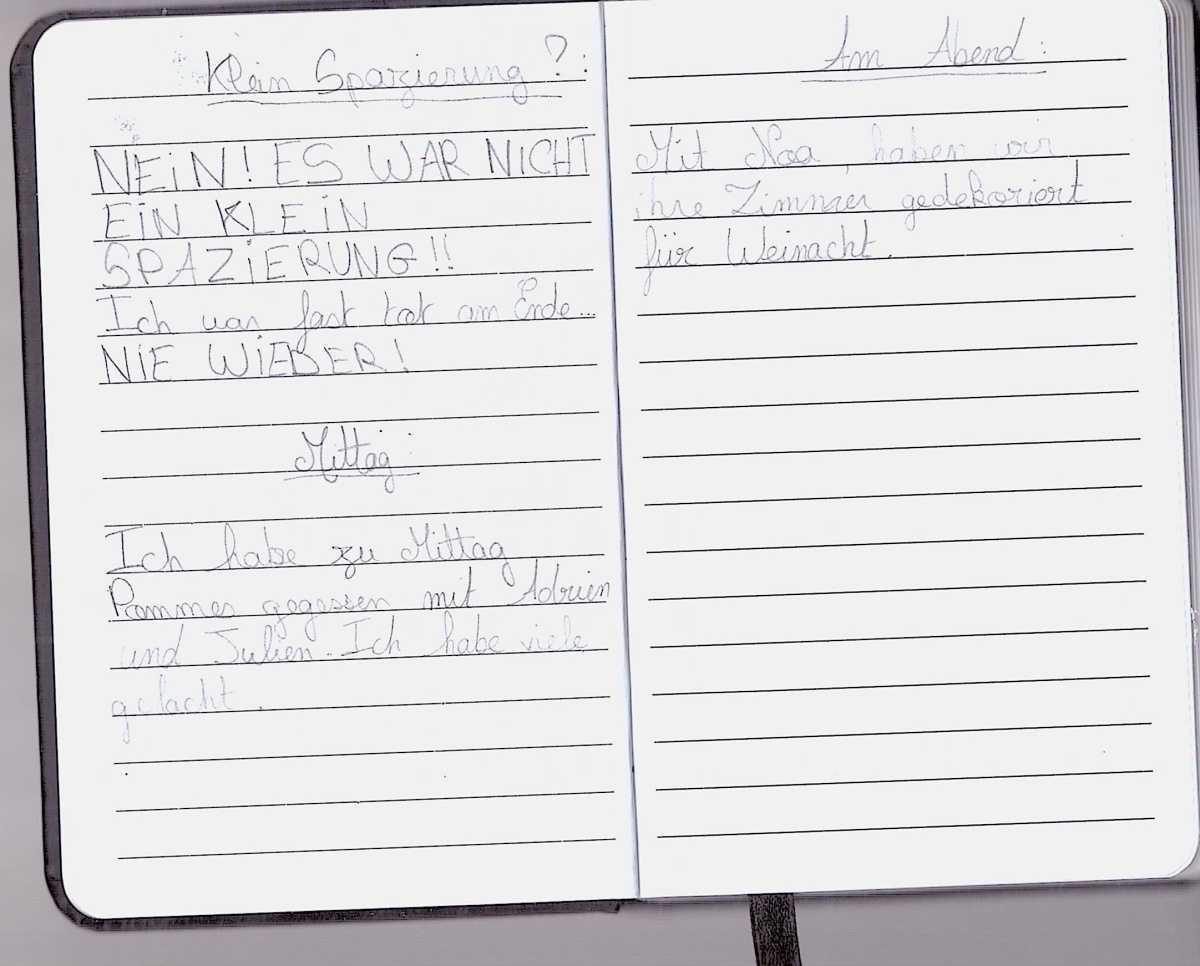 Klein Spazierung ? :
NEiN! ES WAR NICHT
EIN KLEiN
SPAZiERUNG!!
Ich war fast tot am Ende...
NiE WiEDER!
Mittag :
Ich habe zu Mittag
Pommes gegessen mit Adrien
und Julien. Ich habe viele
gelacht.
Am Abend :
Mit Noa, haben wir
ihre Zimmer gedekoriert
für Weinacht.